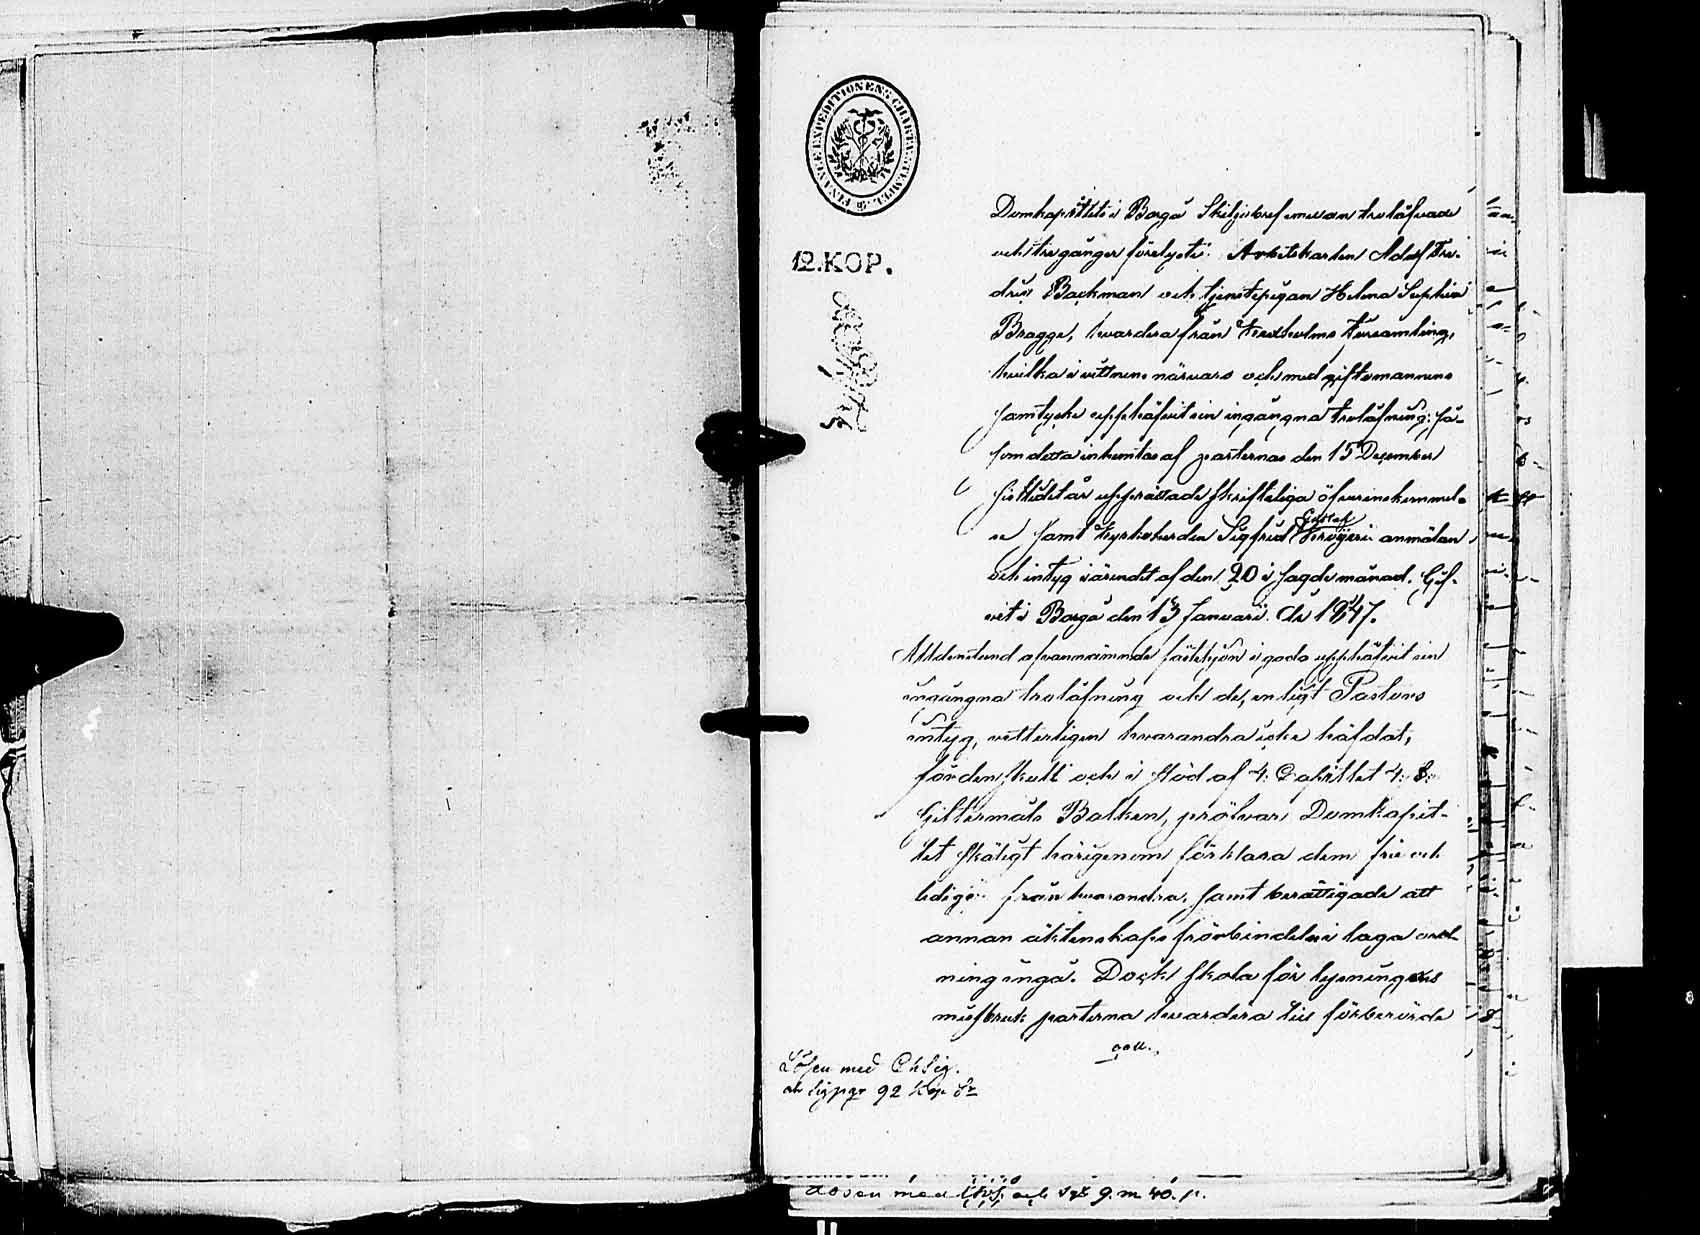 FINANCE EXPEDITIONENS CHARTÆ STEMPEL
12. KOP.
Domkapitlets i Borgå Skiljobref emellan trolåfvade
och tre gånger förelyste Arbetskarlen Adolf Fre-
dric Backman och tjenstepigan Helena Sophia
Bragge, hvardera från församling,
hvilka i vittnens närvaro och med giftomannens
samtycke upphäfvit sin ingångna trolåfning; så-
som detta inhemtas af parternas den 15 December
sistledet år upprättade skrifteliga öfverenskommel-
se samt Kyrkoherden Sigfrid anmälan
och intyg i ärendet af den 20 i sagde månad. Gif-
vit i Borgå den 13 Januarii År 1847.
Alldenstund ofvannämnde fästehjon i godo upphäfvit sin
ingångna trolåfning och de, enligt Pastors
intyg, vetterligen hvarandra icke häfdat;
fördenskull och i stöd af 4: Capitlet 4: §.
Giftermåls Balken, pröfvar Domkapit-
let skäligt härigenom förklara dem frie och
ledige från hvarandra, samt berättigade att
annan äktenskaps förbindelse i laga ord-
ning ingå. Dock skola för lysningens
missbruk parterna hvardera till förberörde
Lösen med Ch Sig.
92 Kop Sr
Lösen med och 9. m 40. p.